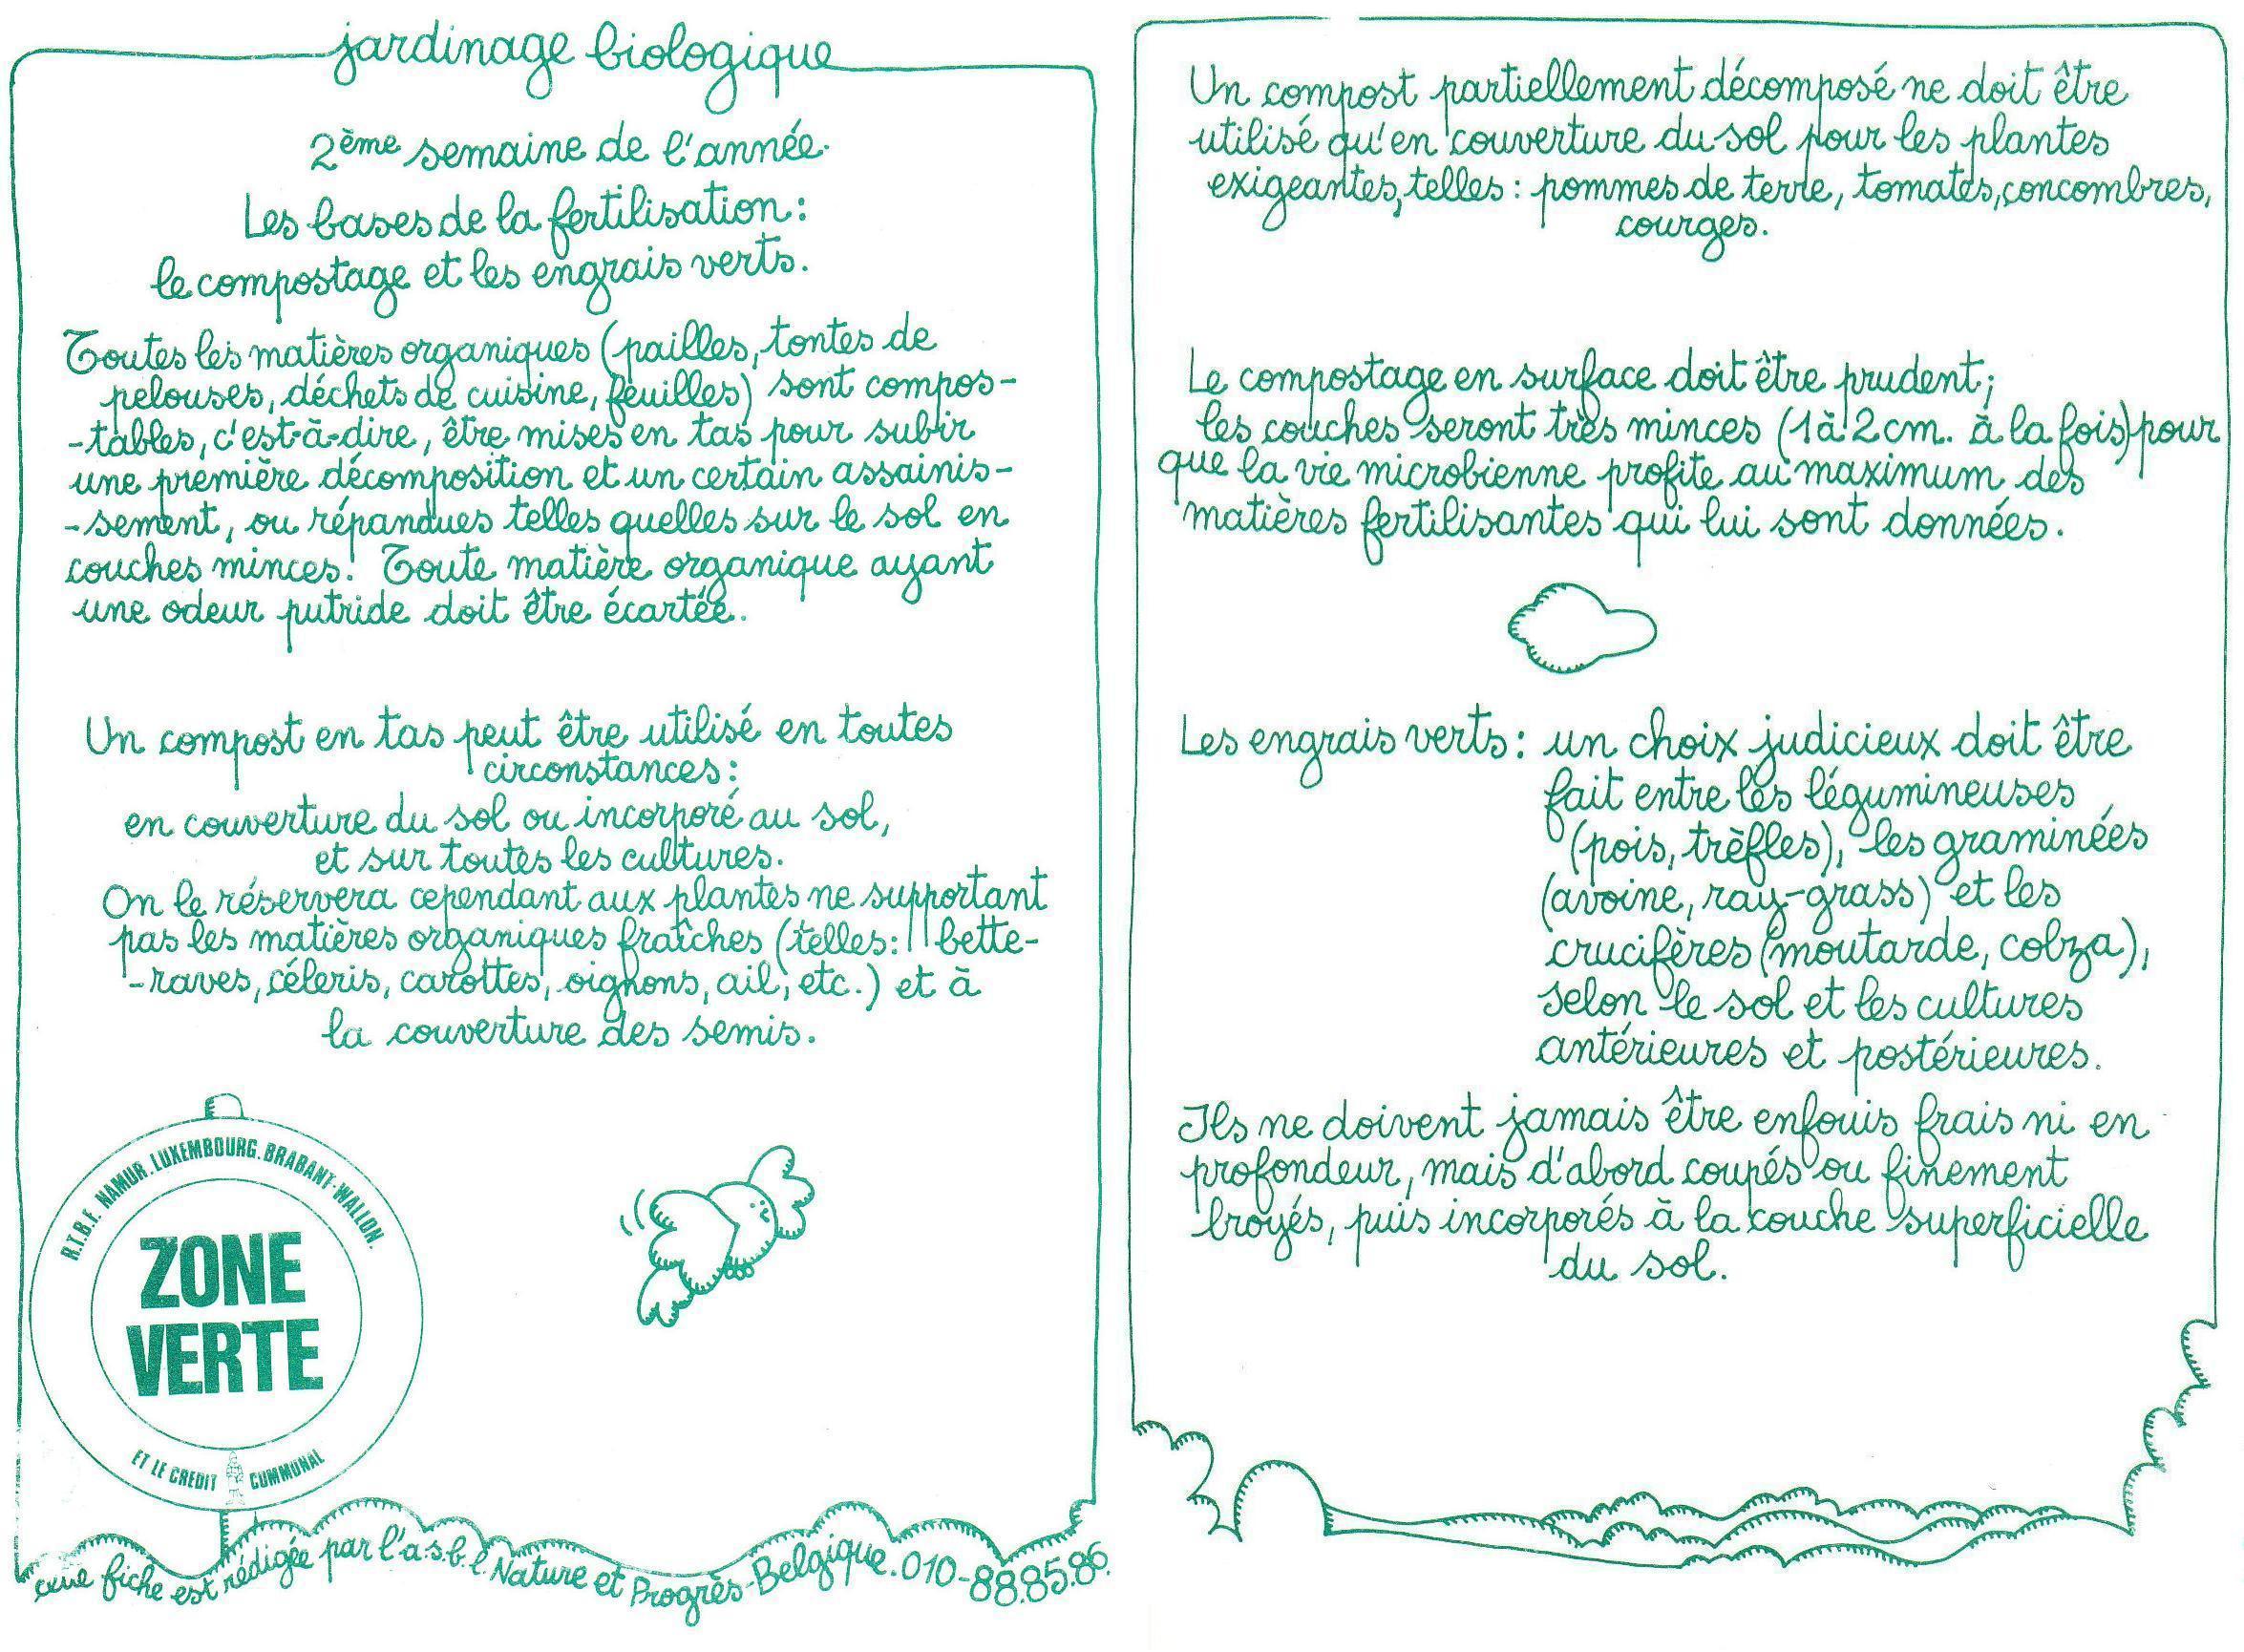 jardinage biologique
2ème semaine de l'année.
Les bases de la fertilisation:
le compostage et les engrais verts.
Toutes les matières organiques (pailles, tontes de
pelouses, déchets de cuisine, feuilles) sont compos-
-tables, c'est-à-dire, être mises en tas pour subir
une première décomposition et un certain assainis-
-sement, ou répandues telles quelles sur le sol en
couches minces. Toute matière organique ayant
une odeur putride doit être écartée.
Un compost en tas peut être utilisé en toutes
circonstances:
en couverture du sol ou incorporé au sol,
et sur toutes les cultures.
On le réservera cependant aux plantes ne supportant
pas les matières organiques fraîches (telles: bette-
-raves, céleris, carottes, oignons, ail, etc.) et à
la couverture des semis.
R.T.B.F. NAMUR.LUXEMBOURG.BRABANT-WALLON.
ZONE
VERTE
ET LE CREDIT COMMUNAL
cette fiche est rédigée par l'a.s.b.l. Nature et Progrès-Belgique.010-88.85.86.
Un compost partiellement décomposé ne doit être
utilisé qu'en couverture du sol pour les plantes
exigeantes, telles: pommes de terre, tomates, concombres,
courges.
Le compostage en surface doit être prudent;
les couches seront très minces (1 à 2 cm. à la fois) pour
que la vie microbienne profite au maximum des
matières fertilisantes qui lui sont données.
Les engrais verts: un choix judicieux doit être
fait entre les légumineuses
(pois, trèfles), les graminées
(avoine, ray-grass) et les
crucifères (moutarde, colza),
selon le sol et les cultures
antérieures et postérieures.
Ils ne doivent jamais être enfouis frais ni en
profondeur, mais d'abord coupés ou finement
broyés, puis incorporés à la couche superficielle
du sol.